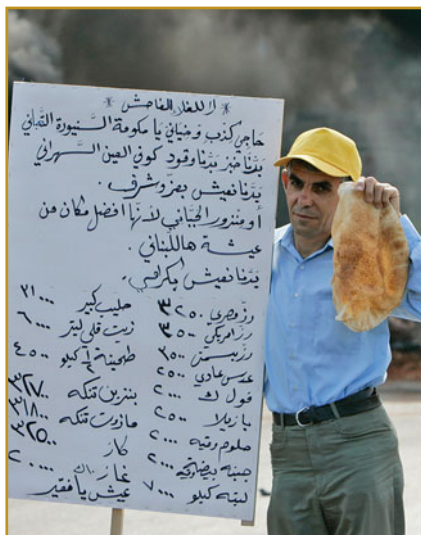 * لا للغلاء الفاحش *
حاجي كذب وخياني يا حكومة السنيورة التعباني
بدنا خبز بدنا وقود كوني العين السهراني
بدنا نعيش بعز وشرف.
أو منزور الجباني لأنها افضل مكان من
عيشة هاللبناني.
بدنا نعيش بكرامي.
رز مصري ٣٢٥٠
رز امريكي ٣٥٠٠
رز بسمتي
عدس عادي ٢٥٠٠
فول ك ٢٠٠٠
بازيلا ٢٥٠٠
حلوم وقيه ٢٠٠٠
جبنه بيضا وقيه ٢٠٠٠
لبنه كيلو ٧٠٠٠
حليب كبير
زيت قلي ليتر ٦٠٠٠
طحينة كيلو ٤٥٠٠
بنزين تنكه ٣٢٧٠٠
مازوت تنكه ٣١٨٠٠
كاز ٣٢٥٠٠
غاز ٢٠٠٠٠
عيش يا فقير